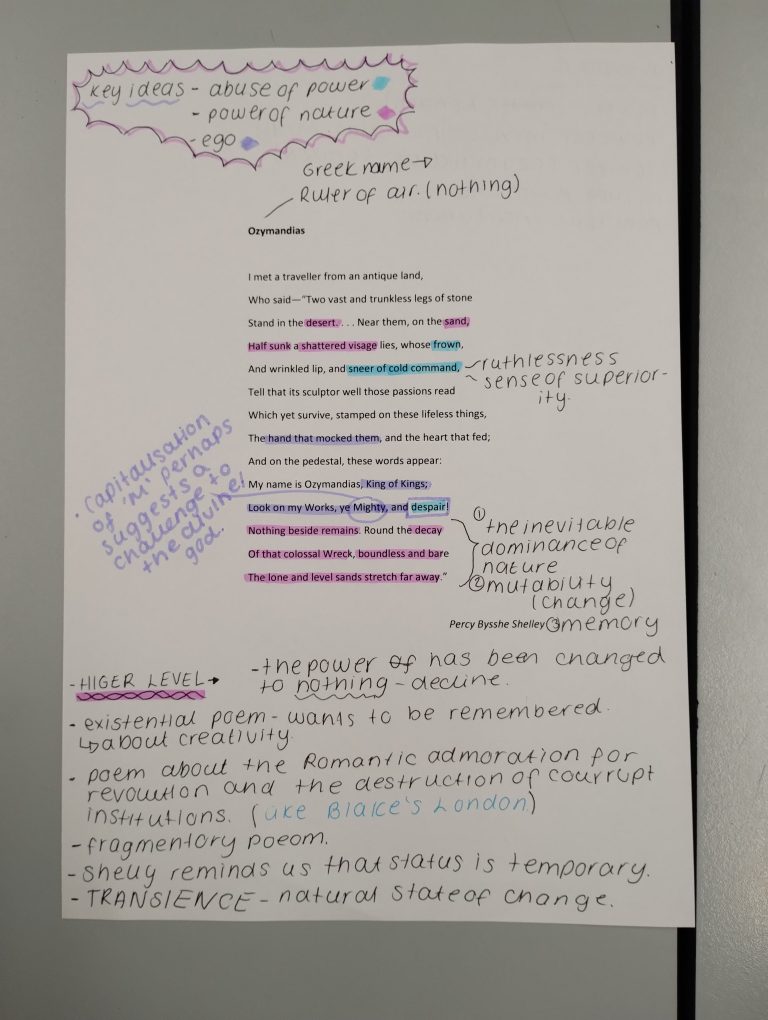 key ideas - abuse of power
- power of nature
- ego
Greek name →
Ruler of air. (nothing)
Ozymandias
I met a traveller from an antique land,
Who said—“Two vast and trunkless legs of stone
Stand in the desert. . . . Near them, on the sand,
Half sunk a shattered visage lies, whose frown,
And wrinkled lip, and sneer of cold command,
ruthlessness
sense of superior-
ity.
Tell that its sculptor well those passions read
Which yet survive, stamped on these lifeless things,
The hand that mocked them, and the heart that fed;
And on the pedestal, these words appear:
My name is Ozymandias, King of Kings;
Look on my Works, ye Mighty, and despair!
Nothing beside remains. Round the decay
Of that colossal Wreck, boundless and bare
The lone and level sands stretch far away.”
· Capitalisation
of 'M' perhaps
suggests a
challenge to
the divine!
god.
① the inevitable
dominance of
nature
② mutability
(change)
Percy Bysshe Shelley
③ memory
- HIGER LEVEL →
- the power of has been changed
to nothing - decline.
- existential poem - wants to be remembered.
↳ about creativity.
· poem about the Romantic admoration for
revolution and the destruction of courrupt
institutions. (like Blake's London)
- fragmentory poeom.
- Shelly reminds us that status is temporary.
- TRANSIENCE - natural state of change.